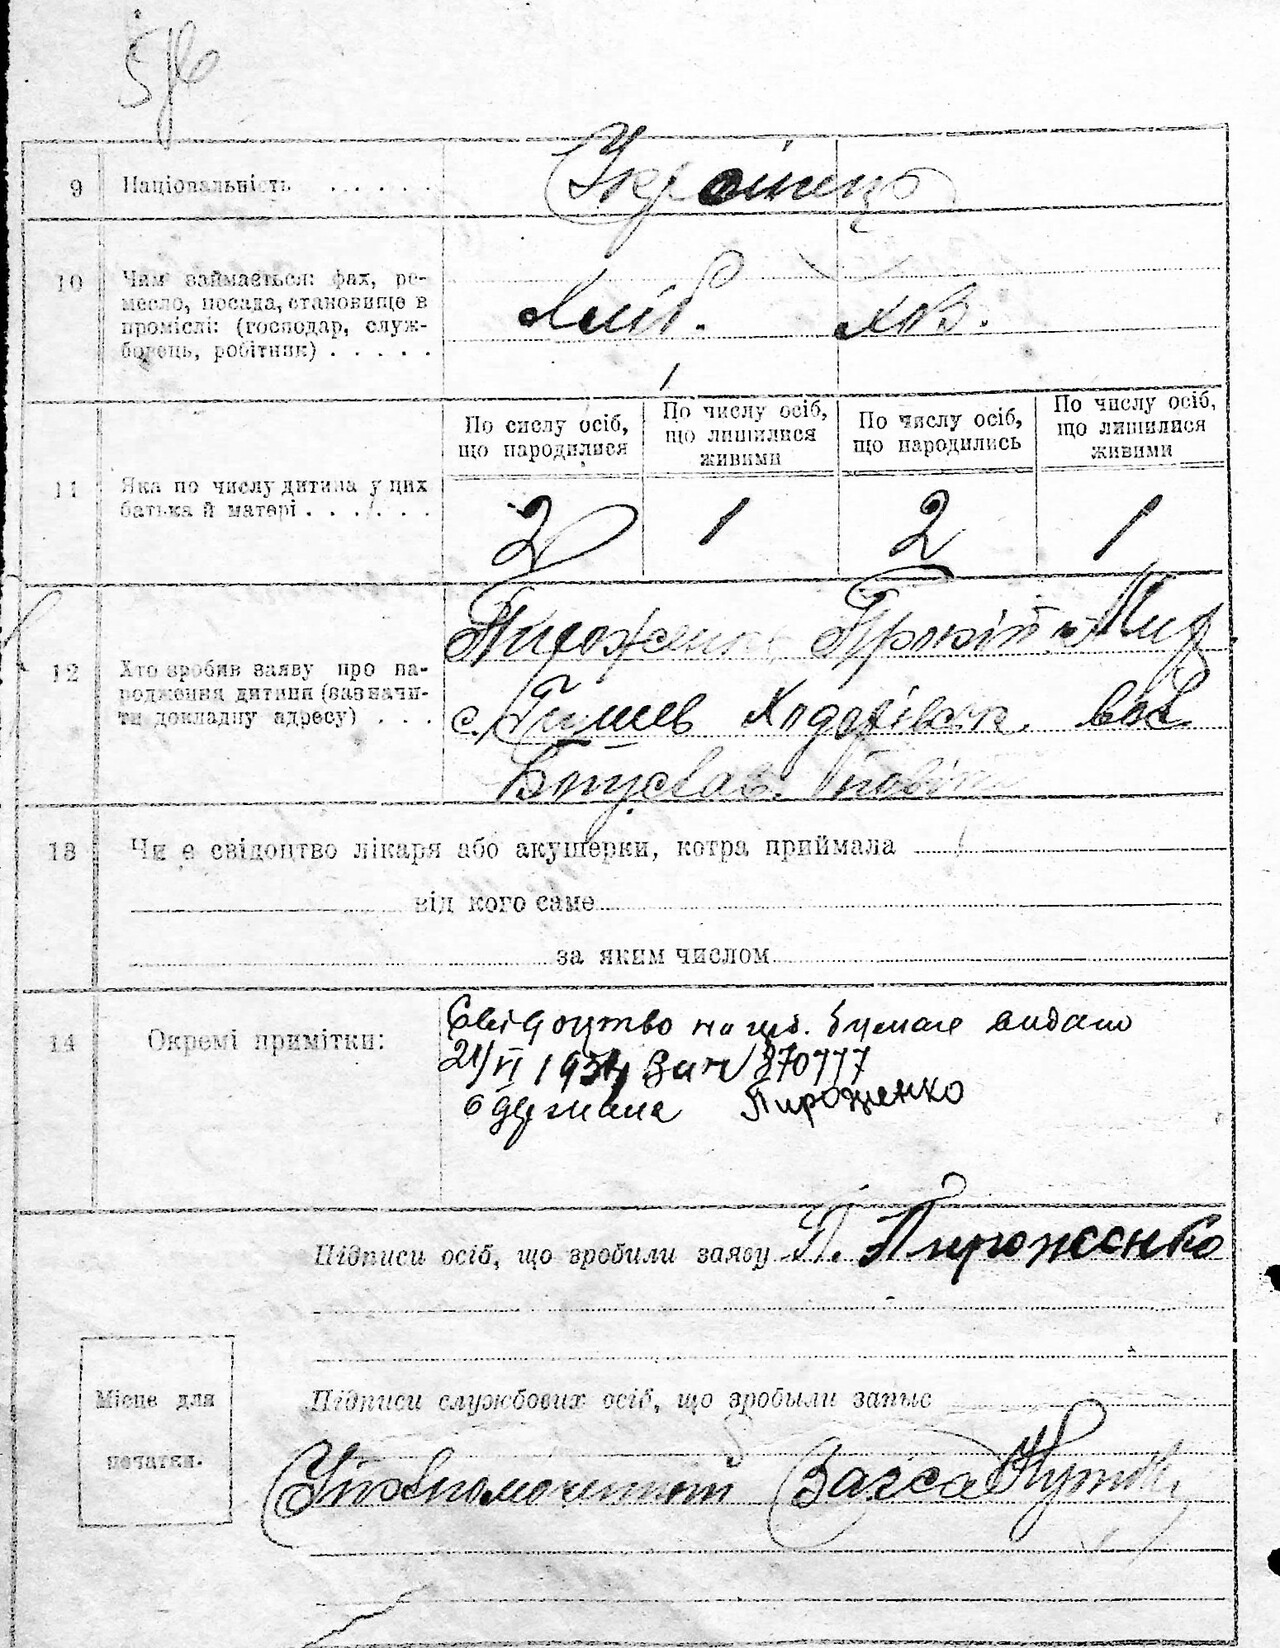 9 Національність . . . . . . Українець
10 Чим займається: фах, ре-
месло, посада, становище в
проміслі: (господар, служ-
бовець, робітник) . . . . . Хліб. хлв.
По числу осіб, що народилися
По числу осіб, що лишилися живими
По числу осіб, що народились
По числу осіб, що лишилися живими
11 Яка по числу дитина у цих
батька й матері . . . . . . 2 1 2 1
12 Хто зробив заяву про на-
родження дитини (зазначи-
ти докладну адресу) . . .
Пироженко Прокіп
с. Гулев Ходорівськ. вол.
Богуслав. повіт
13 Чи є свідоцтво лікаря або акушерки, котра приймала
від кого саме
за яким числом
14 Окремі примітки: Свідоцтво на видано
21/VI 1934 За № 370777
одержала Пироженко
Підписи осіб, що зробили заяву П. Пироженко
Підписи службових осіб, що зробыли запыс
Місце для
печатки.
Уповномочений Загса